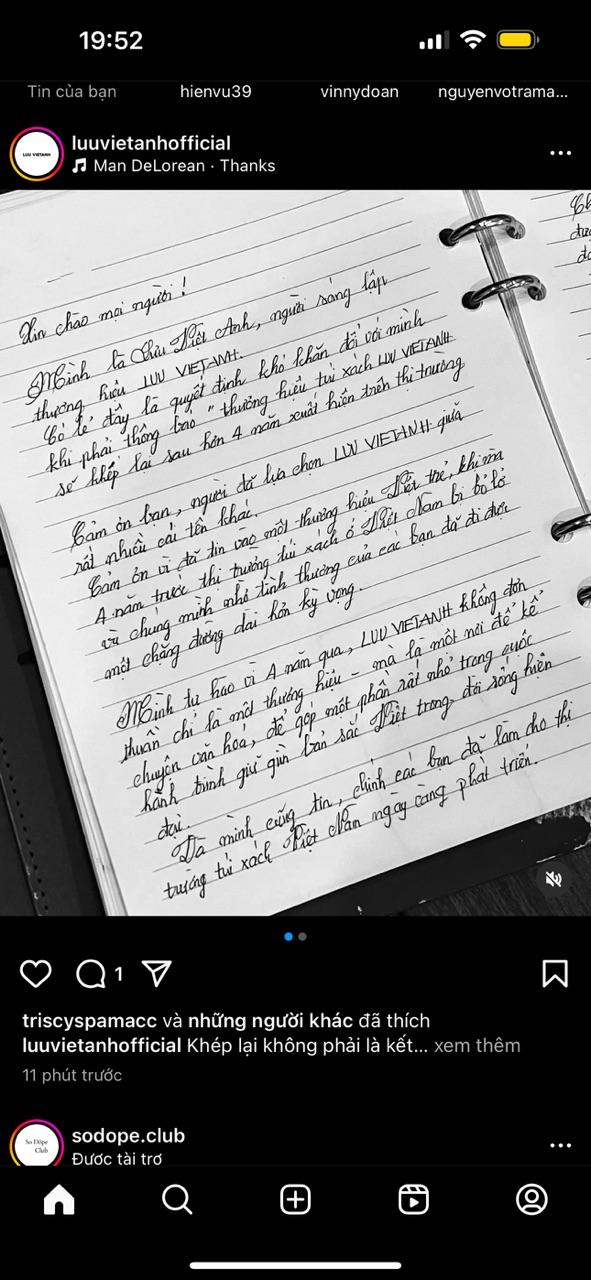 19:52
Tin của bạn
hienvu39
vinnydoan
nguyenvotrama...
LUU VIETANH
luuvietanhofficial
Man DeLorean · Thanks
Xin chào mọi người!
Mình là Lưu Việt Anh, người sáng lập
thương hiệu LUU VIETANH.
Có lẽ đây là quyết định khó khăn đối với mình
khi phải thông báo "thương hiệu túi xách LUU VIETANH
sẽ khép lại sau hơn 4 năm xuất hiện trên thị trường
Cảm ơn bạn, người đã lựa chọn LUU VIETANH giữa
rất nhiều cái tên khác.
Cảm ơn vì đã tin vào một thương hiệu Việt trẻ, khi mà
4 năm trước thị trường túi xách ở Việt Nam bị bỏ lỡ
và chúng mình nhờ tình thương của các bạn đã đi được
một chặng đường dài hơn kỳ vọng.
Mình tự hào vì 4 năm qua, LUU VIETANH không đơn
thuần chỉ là một thương hiệu - mà là một nơi để kể
chuyện văn hoá, để góp một phần rất nhỏ trong cuộc
hành trình giữ gìn bản sắc Việt trong đời sống hiện
đại.
Và mình cũng tin, chính các bạn đã làm cho thị
trường túi xách Việt Nam ngày càng phát triển.
1
triscyspamacc và những người khác đã thích
luuvietanhofficial Khép lại không phải là kết... xem thêm
11 phút trước
So Dópe
Club
sodope.club
Được tài trợ